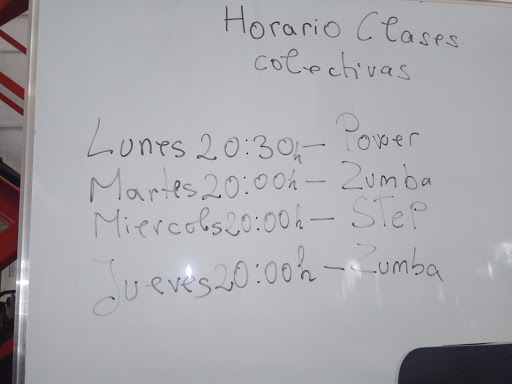 Horario Clases
colectivas
Lunes 20:30h - Power
Martes 20:00h - Zumba
Miercols 20:00h - STeP
Jueves 20:00h - Zumba